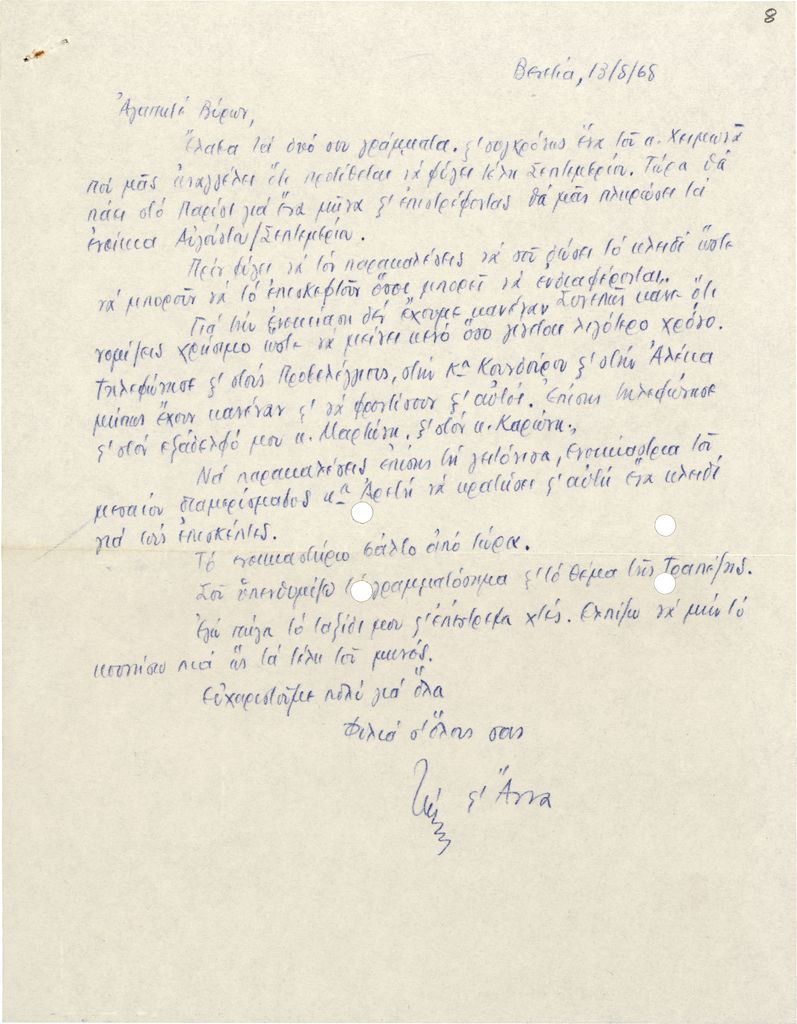 8
Βενετία, 13/8/68
Ἀγαπητέ Βύρων,
Ἔλαβα τά δυό σου γράμματα. ξ' συγχρόνως ἕνα τοῦ κ. Χειμωνᾶ
πού μᾶς ἀναγγέλει ὅτι προτίθεται νά φύγει τέλη Σεπτεμβρίου. Τώρα θά
πάει στό Παρίσι γιά ἕνα μῆνα ξ' ἐπιστρέφοντας θά μᾶς πληρώσει τά
ἐνοίκια Αὐγούστου/Σεπτεμβρίου.
Πρίν φύγει νά τόν παρακαλέσεις νά σοῦ δώσει τό κλειδί ὥστε
νά μποροῦν νά τό ἐπισκεφτοῦν ὅσοι μπορεῖ νά ἐνδιαφέρονται.
Γιά τήν ἐνοικίαση δέν ἔχουμε κανέναν Συνεπῶς κάνε ὅτι
νομίζεις χρήσιμο ὥστε νά μείνει κενό ὅσο γίνεται λιγότερο χρόνο.
Τηλεφώνησε ξ' στούς Προβελέγγιους, στήν Κα Κουνδούρου ξ' στήν Ἀλέκα
μήπως ἔχουν κανέναν ξ' νά φροντίσουν ξ' αὐτοί. Ἐπίσης τηλεφώνησε
ξ' στόν ἐξάδελφό μου κ. Μαρτίνη, ξ' στόν κ. Καρώνη.
Νά παρακαλέσεις ἐπίσης τή γειτόνισσα, ἐνοικιάστρια τοῦ
μεσαίου διαμερίσματος κα Ἀρετή νά κρατήσει ξ' αὐτή ἕνα κλειδί
γιά τούς ἐπισκέπτες.
Τό ἐνοικιαστήριο βάλτο ἀπό τώρα.
Σοῦ ὑπενθυμίζω τό γραμματόσημα ξ' τό θέμα τῆς Τραπέζης.
Ἐγώ πῆγα τό ταξίδι μου ξ' ἐπέστρεψα χτές. Ἐλπίζω νά μήν τό
κουνήσω πιά ὥς τά τέλη τοῦ μηνός.
Εὐχαριστοῦμε πολύ γιά ὅλα
Φιλιά σ' ὅλους σας
ξ' Ἄννα